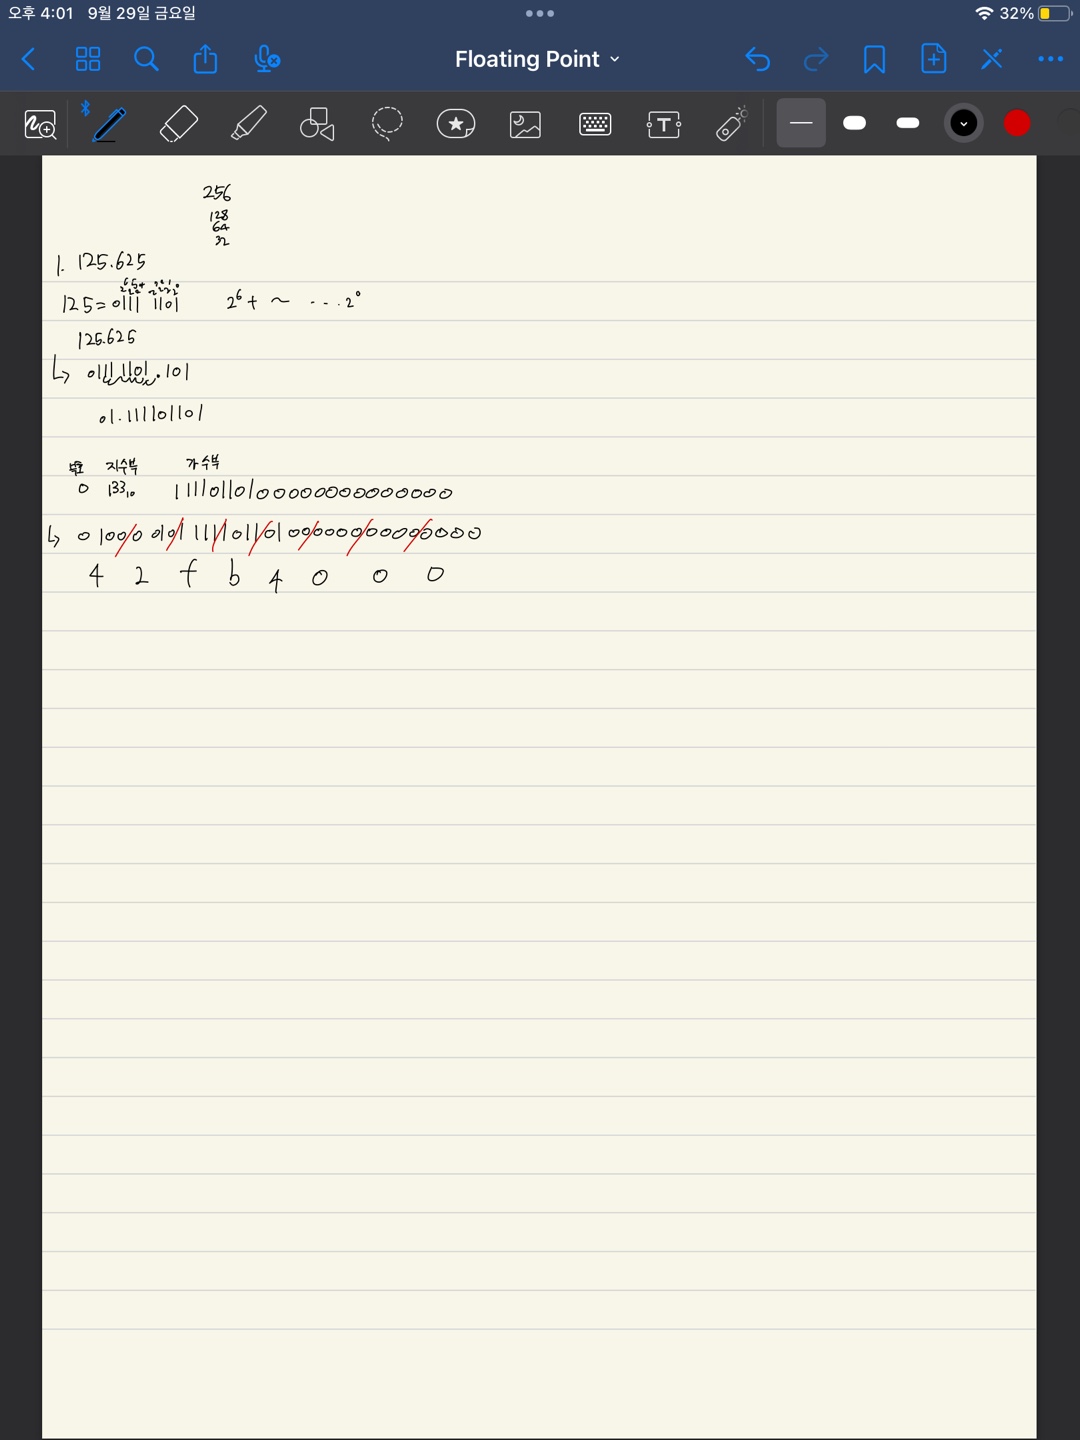 오후 4:01 9월 29일 금요일
32%
Floating Point
T
256
128
64
32
1. 125.625
125 = 0111 1101 2⁶ + ~ ....2⁰
125.625
↳ 01111101.101
01.111101101
부호 지수부 가수부
0 133₁₀ 11110110100000000000000
↳ 0 1000 0101 11110110100000000000000
4 2 f b 4 0 0 0